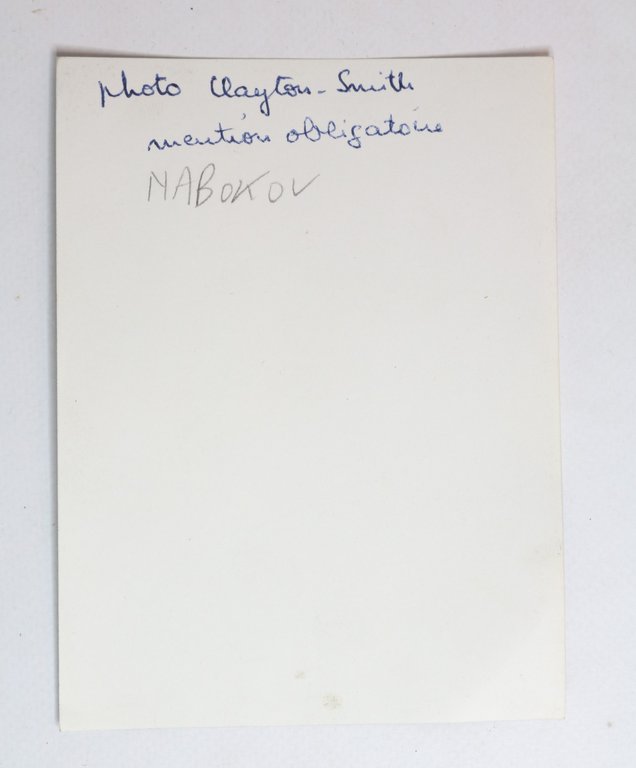 photo Clayton-Smith
mention obligatoire
NABOKOV